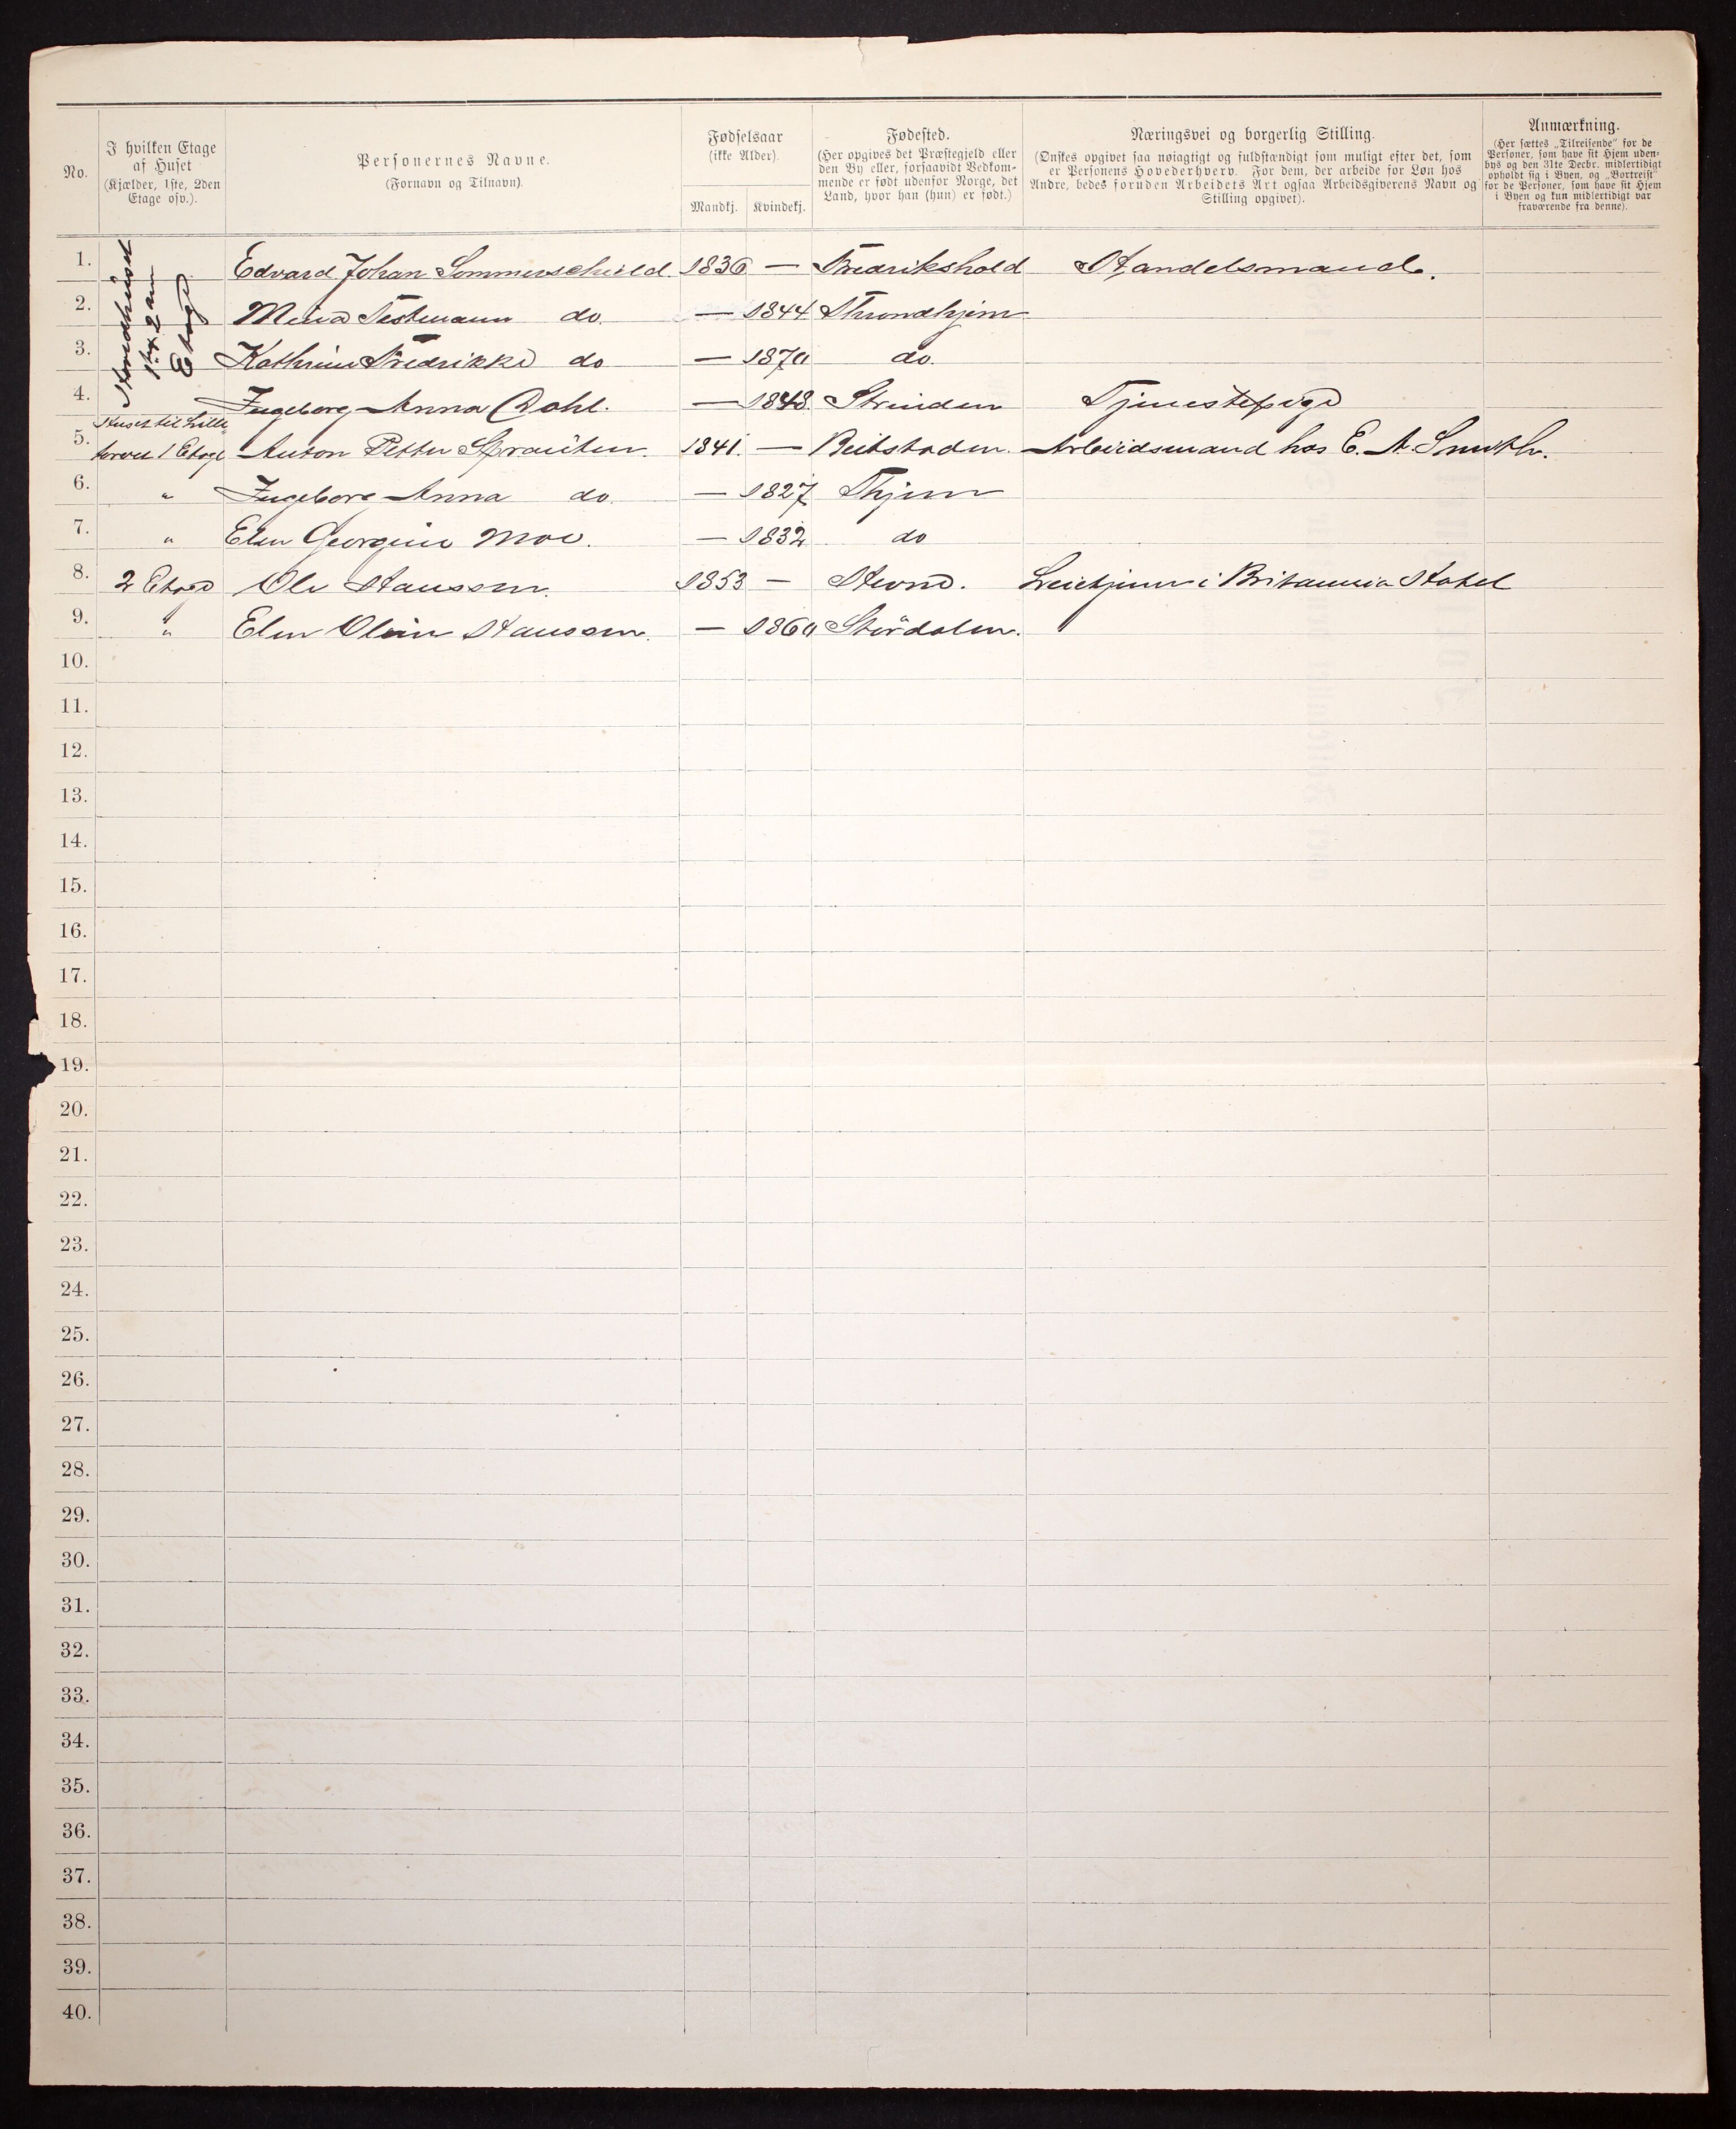 No.
I hvilken Etage
af Huset
(Kjælder, 1ste, 2den
Etage osv.).
Personernes Navne.
(Fornavn og Tilnavn).
Fødselsaar
(ikke Alder).
Mandkj. Kvindekj.
Fødested.
(Her opgives det Præstegjeld eller
den By eller, forsaavidt Vedkom-
mende er født udenfor Norge, det
Land, hvor han (hun) er født.)
Næringsvei og borgerlig Stilling.
(Ønskes opgivet saa nøiagtigt og fuldstændigt som muligt efter det, som
er Personens Hovederhverv. For dem, der arbeide for Løn hos
Andre, bedes foruden Arbeidets Art ogsaa Arbeidsgiverens Navn og
Stilling opgivet).
Anmærkning.
(Her sættes „Tilreisende" for de
Personer, som have sit Hjem uden-
bys og den 31te Decbr. midlertidigt
opholdt sig i Byen, og „Bortreist"
for de Personer, som have sit Hjem
i Byen og kun midlertidigt var
fraværende fra denne).
Etage
1. Edvard Johan Sommerschield 1836 — Fredrikshald Handelsmand.
2. do. — 1844 Throndhjem
3. Kathrine Fredrikke do — 1870 do.
4. Ingeborg Anna Dahl. — 1848. Strinden Tjenestepige
Huset til Lille
5. torvet 1 Etage Anton Petter 1841. — Beitstaden. Arbeidsmand hos E. A. Smith.
6. " Ingeborg Anna do. — 1827 Thjem
7. " Elen Georgine Moe. — 1832 do
8. 2 Etage Ole Hanssen. 1853 — i Britannia Hotel
9. " Elen Oline Hanssen. — 1860 Stördalen.
10.
11.
12.
13.
14.
15.
16.
17.
18.
19.
20.
21.
22.
23.
24.
25.
26.
27.
28.
29.
30.
31.
32.
33.
34.
35.
36.
37.
38.
39.
40.